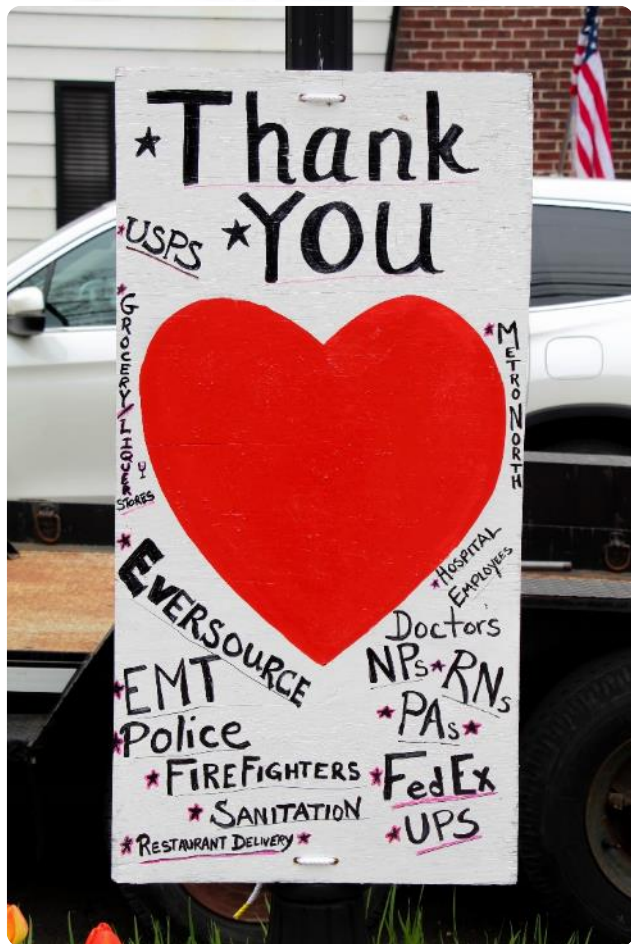 Thank
YOU
USPS
GROCERY/LIQUER
STORES
METRO NORTH
EVERSOURCE
HOSPITAL
EMPLOYEES
Doctors
NPs RNs
PAs
EMT
Police
FIREFIGHTERS
SANITATION
RESTAURANT DELIVERY
FedEx
UPS